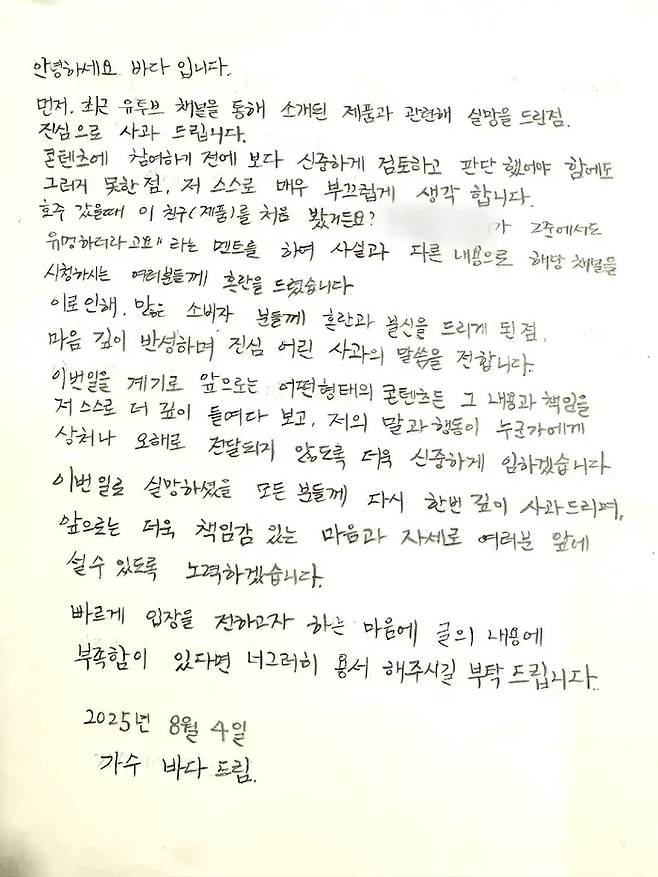 안녕하세요. 바다 입니다.
먼저, 최근 유투브 채널을 통해 소개된 제품과 관련해 실망을 드린점,
진심으로 사과 드립니다.
콘텐츠에 참여하기 전에 보다 신중하게 검토하고 판단 했어야 함에도
그러지 못한 점, 저 스스로 매우 부끄럽게 생각 합니다.
호주 갔을때 이 친구(제품)를 처음 봤거든요? 가 고준에서도
유명하더라고요" 라는 멘트를 하여 사실과 다른 내용으로 해당 채널을
시청하시는 여러분들께 혼란을 드렸습니다
이로 인해, 많은 소비자 분들께 혼란과 불신을 드리게 된 점,
마음 깊이 반성하며 진심 어린 사과의 말씀을 전합니다.
이번일을 계기로 앞으로는 어떤형태의 콘텐츠든 그 내용과 책임을
저 스스로 더 깊이 들여다 보고, 저의 말과 행동이 누군가에게
상처나 오해로 전달되지 않도록 더욱 신중하게 임하겠습니다
이번 일로 실망하셨을 모든 분들께 다시 한번 깊이 사과드리며,
앞으로는 더욱 책임감 있는 마음과 자세로 여러분 앞에
설 수 있도록 노력하겠습니다.
빠르게 입장을 전하고자 하는 마음에 글의 내용에
부족함이 있다면 너그러히 용서 해주시길 부탁 드립니다.
2025년 8월 4일
가수 바다 드림.